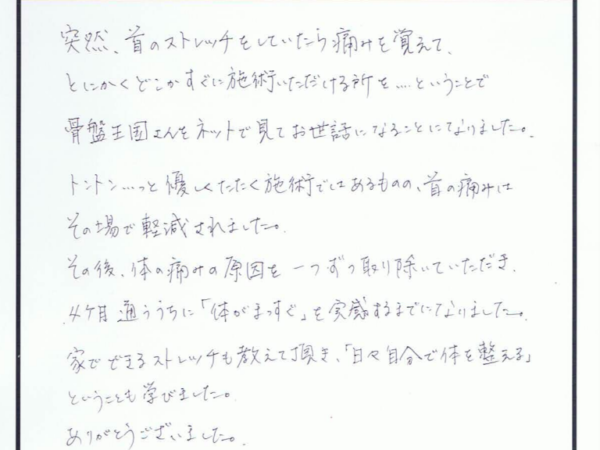 突然、首のストレッチをしていたら痛みを覚えて、
とにかくどこかすぐに施術いただける所を....ということで
骨盤王国さんをネットで見てお世話になることになりました。
トントン...っと優しくたたく施術ではあるものの、首の痛みは
その場で軽減されました。
その後、体の痛みの原因を一つずつ取り除いていただき、
4ヶ月通ううちに「体がまっすぐ」を実感するまでになりました。
家でできるストレッチも教えて頂き、「日々自分で体を整える」
ということも学びました。
ありがとうございました。